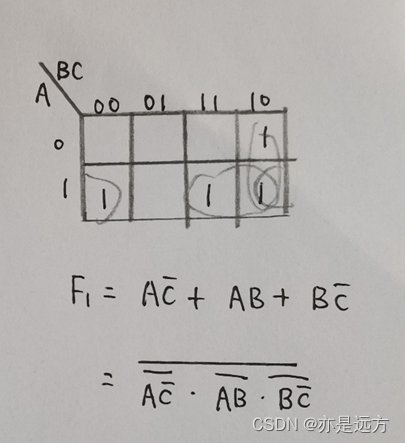 BC
A 00 01 11 10
0 1
1 1 1 1
F₁ = AC̅ + AB + BC̅
= \overline{\overline{AC̅} · \overline{AB} · \overline{BC̅}}
CSDN @亦是远方